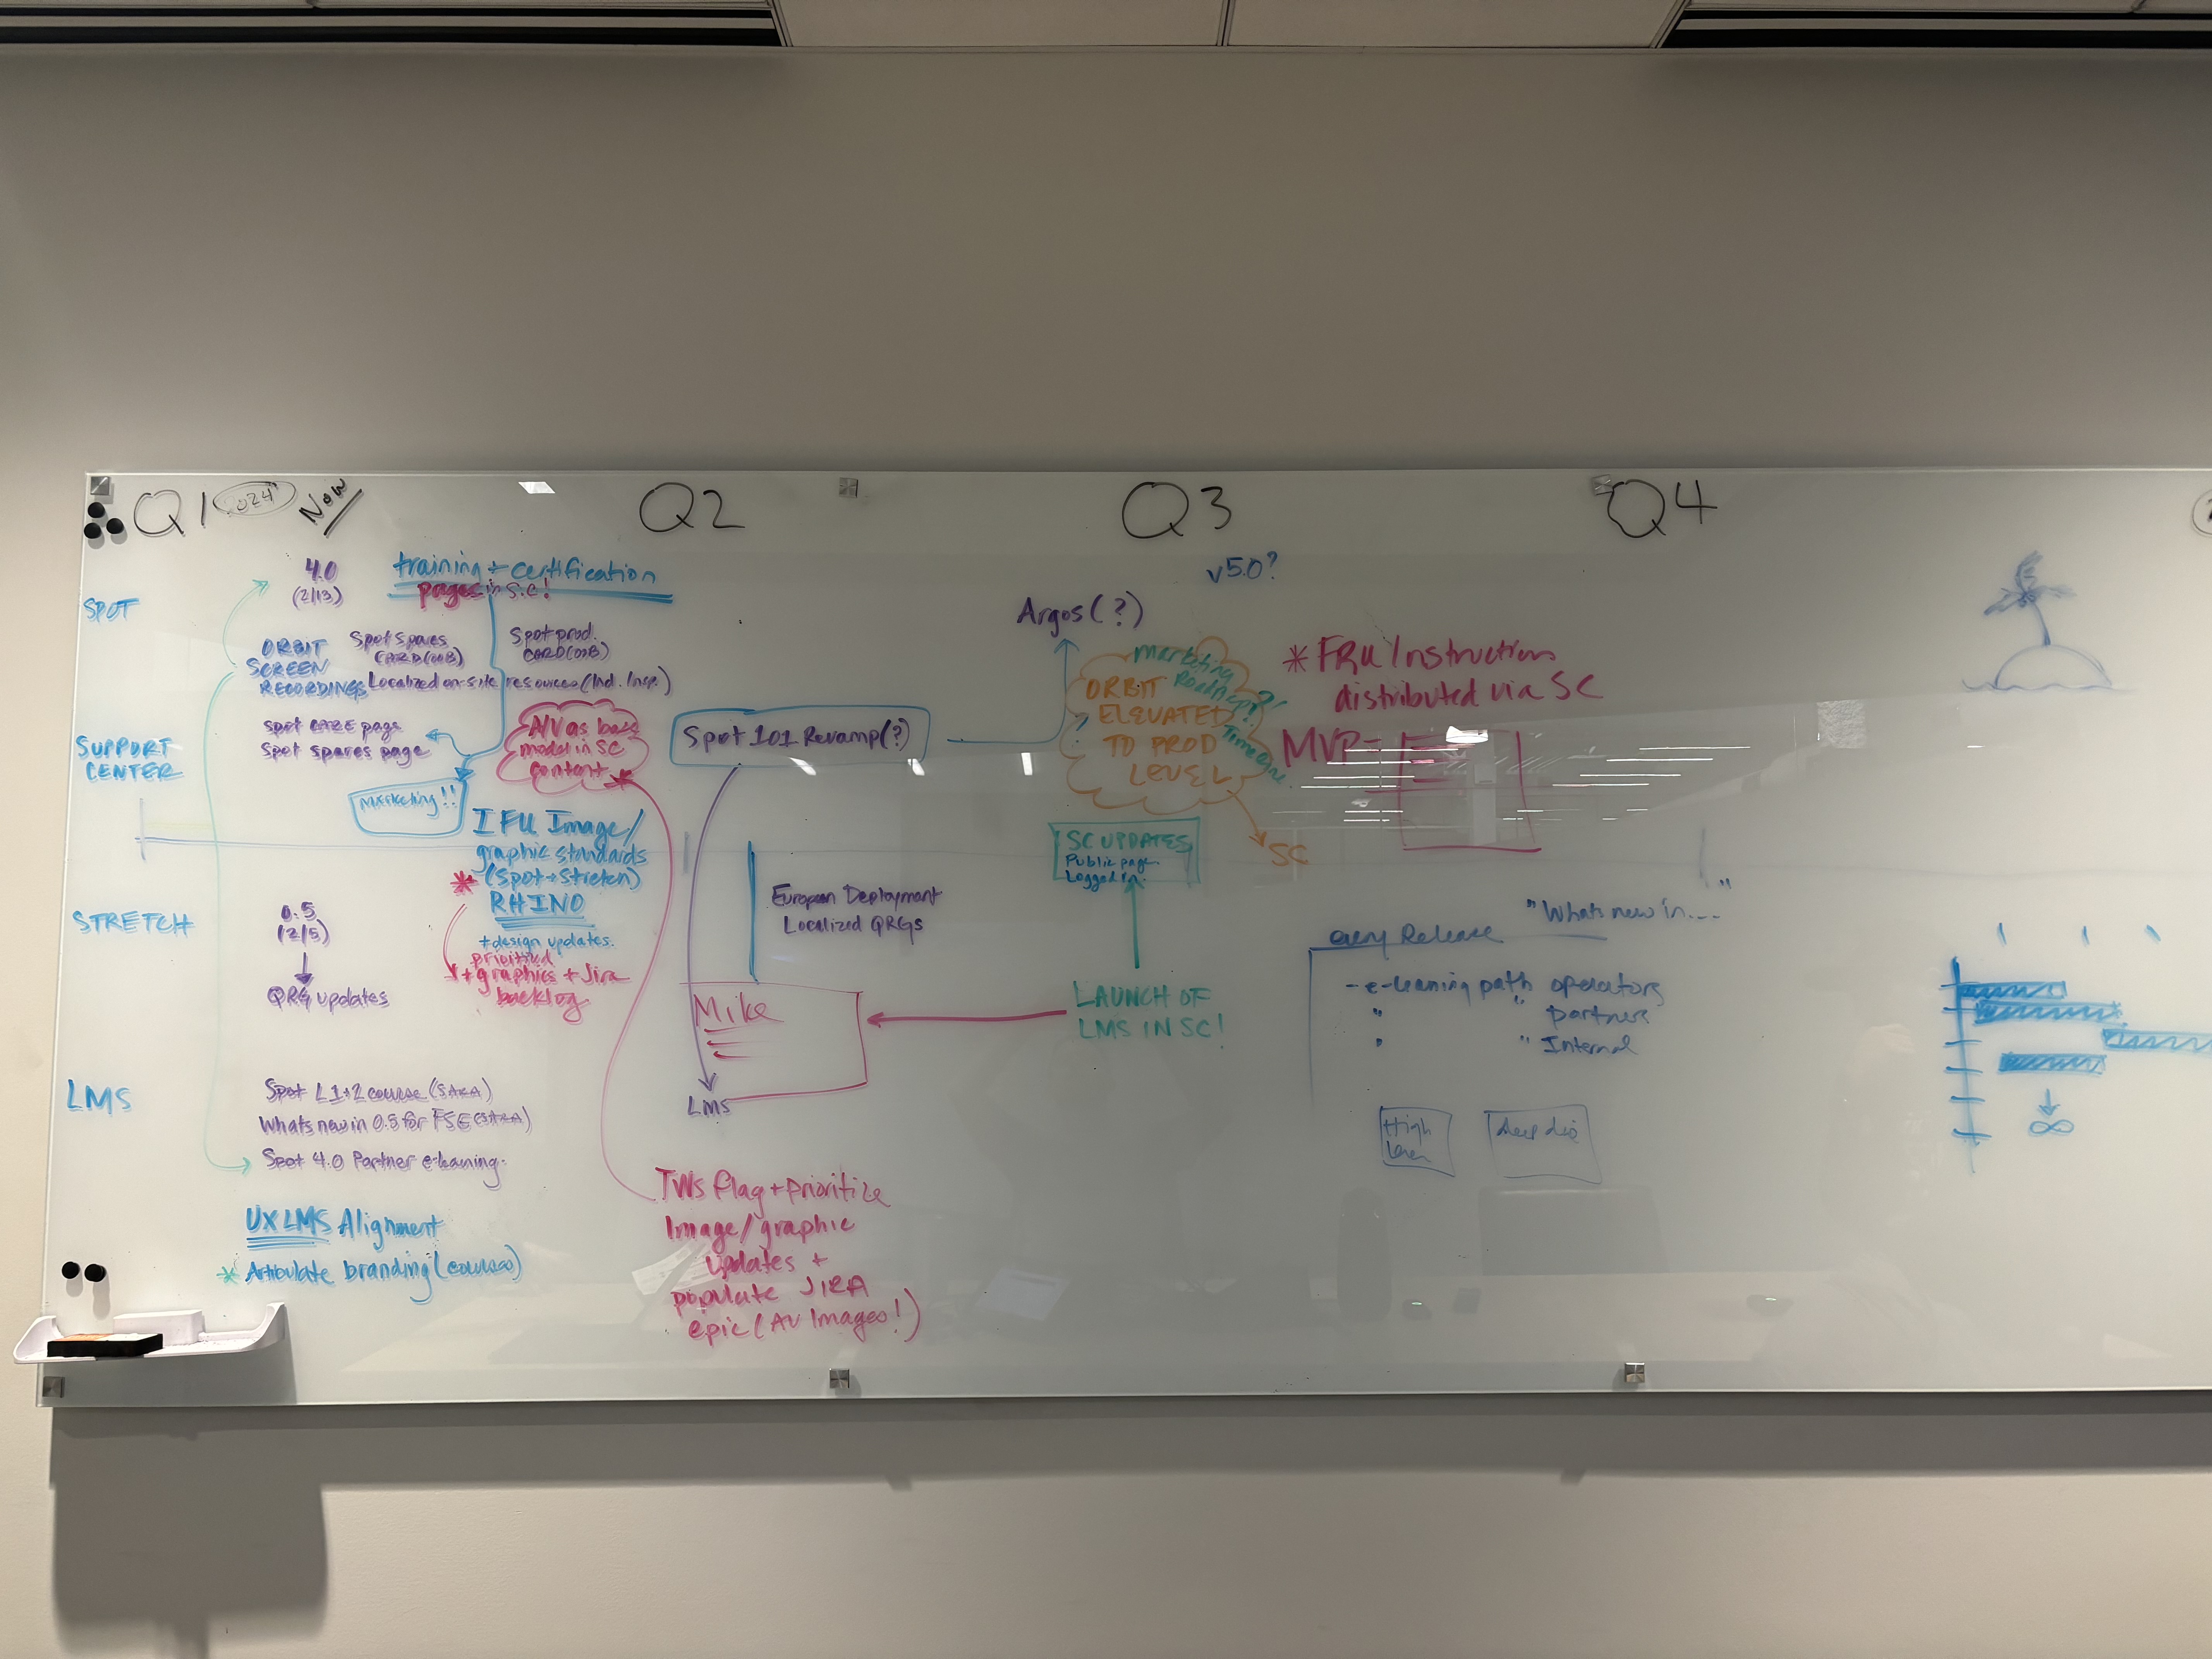 Q1 2024 Now
Q2
Q3
Q4
SPOT
4.0
(2/13)
training + certification
pages in S.C!
ORBIT
SCREEN
RECORDINGS
Spot Spares
CARD (OOB)
Spot prod.
CARD (OOB)
Localized on-site resources (Ind. Insp.)
SUPPORT
CENTER
spot page
Spot spares page
Marketing!!
as base
model in SC
content
IFU Image/
graphic standards
(Spot + Stretch)
RHINO
+ design updates.
+ graphics + Jira
backlog
STRETCH
0.5
(2/5)
QRG updates
LMS
Spot L1+2 course (SARA)
Whats new in 0.5 for FSE (SARA)
Spot 4.0 Partner e-learning
UX LMS Alignment
* Articulate branding (courses)
Spot 101 Revamp (?)
European Deployment
Localized QRGs
Mike
LMS
TWs flag + prioritize
Image/graphic
updates +
populate JIRA
epic (AV Images!)
v5.0?
Argos (?)
Marketing
Roadmap?!
Timeline
ORBIT
ELEVATED
TO PROD
LEVEL
SC
SC UPDATES
Public page
Logged in
LAUNCH OF
LMS IN SC!
* FRU Instructions
distributed via SC
MVP=
"Whats new in...."
every Release
- e-learning path operators
" " partners
" " Internal
High
Level
deep dive
∞